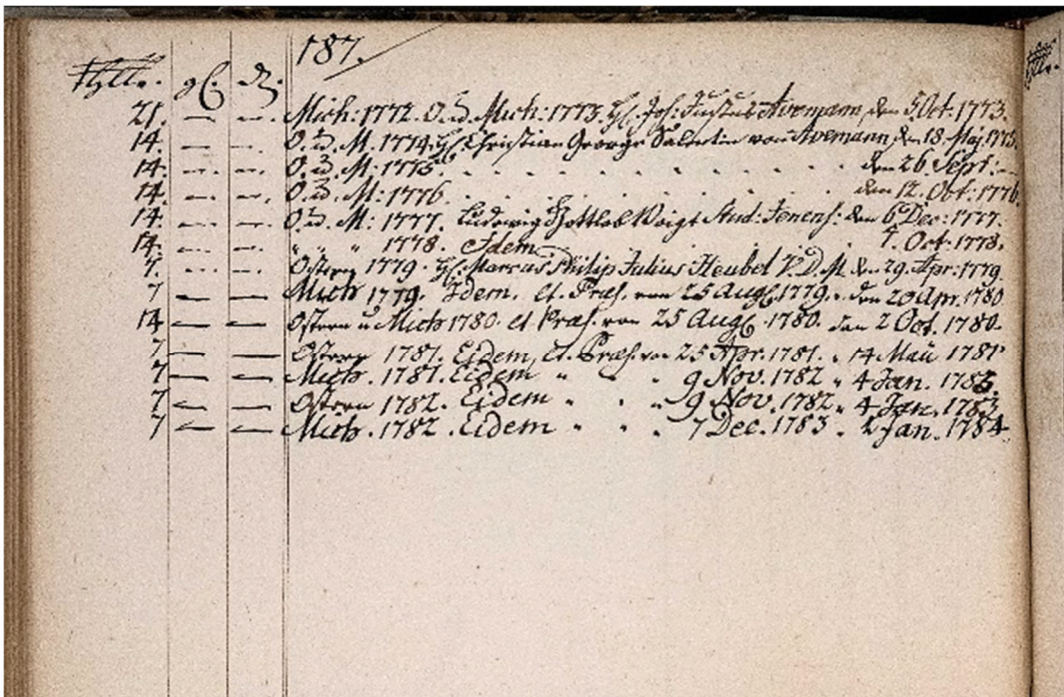 187.
Thlr. gl. d.
21. — —. Mich: 1772. O. u. Mich: 1773. H. Joh: Justus Avemann, den 5 Oct: 1773.
14. — —. O. u. M. 1774. H. Christian George Valentin von Avemann, den 18. Maj. 1775.
14. — —. O. u. M: 1775. . . . . . . . . . . . den 26. Sept: —
14 — —. O. u. M: 1776. . . . . . . . . . . . den 12. Obt: 1776.
14. — —. O. u. M: 1777. Ludewig Gottlob Voigt Stud: Jenens: den 6 Dec: 1777.
14. — —. " " " 1778. Idem 7. Oct: 1778.
7. — —. Ostern 1779. H. Marcus Philip Julius Heubel V. D. M. den 29. Apr: 1779.
7 — — Mich 1779. Idem. et. Præs. von 25 Aug. 1779. " den 20 Apr. 1780
14 — — Ostern u Mich 1780. et Præs. von 25 Aug 1780. den 2 Oct. 1780.
7 — — Ostern 1781. Eidem, et. Præs. von 25 Apr. 1781. " 14 Maii 1781
7 — — Mich. 1781. Eidem " " " 9 Nov. 1782 " 4 Jan. 1783.
7 — — Ostern 1782. Eidem " " " 9 Nov. 1782 " 4 Jan. 1783
7 — — Mich. 1782. Eidem " " " 7 Dec. 1783 " 2 Jan. 1784.
Thlr.